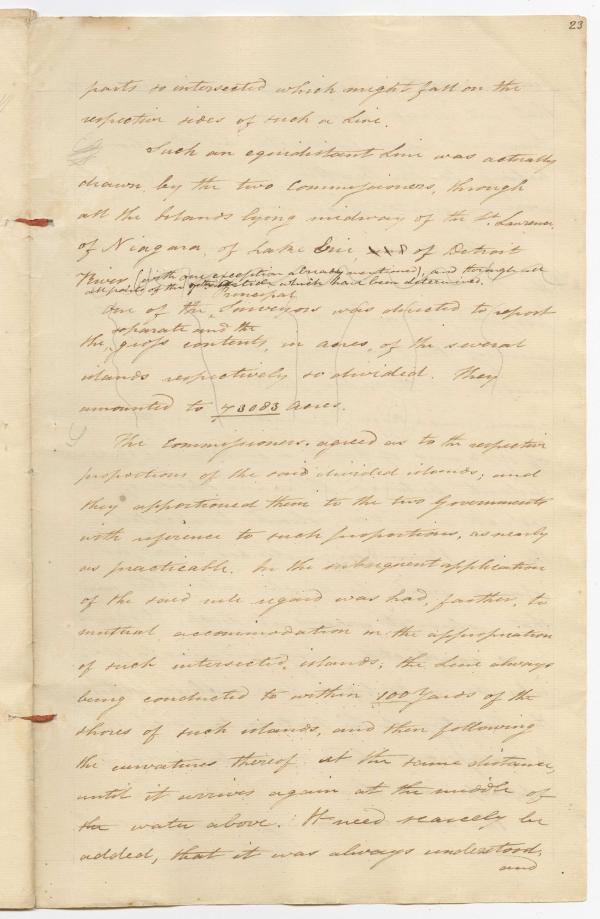 23
parts so intersected which might fall on the
respective sides of such a Line.
Such an equidistant Line was actually
drawn, by the two Commissioners, through
all the Islands lying midway of the St. Lawrence,
of Niagara, of Lake Erie, of Detroit
River (with one exception already mentioned), and through all
all parts of the which had been determined.
Principal
One of the Surveyors was directed to report
separate and the
the gross contents, in acres, of the several
islands respectively so divided. They
amounted to 73083 Acres.
The Commissioners agreed as to the respective
proportions of the said divided islands; and
they apportioned them to the two Governments
with reference to such proportions, as nearly
as practicable. In the subsequent application
of the said rule regard was had, farther, to
mutual accommodation in the appropriation
of such intersected islands; the Line always
being conducted to within 100 Yards of the
shores of such islands, and then following
the curvatures thereof at the same distance,
until it arrives again at the middle of
the water above. It need scarcely be
added, that it was always understood,
and